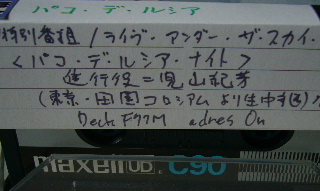 パコ・デ・ルシア
特別番組/ライヴ・アンダー・ザ・スカイ・
<パコ・デ・ルシア・ナイト>
進行役=児山紀芳
(東京・田園コロシアムより生中継)
Deck F77M adres On
maxell UD C90